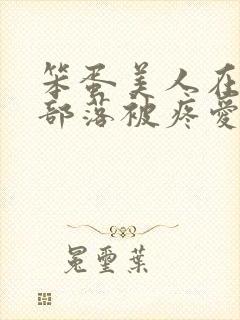 笨蛋美人在
部落被疼愛
冕璽葉